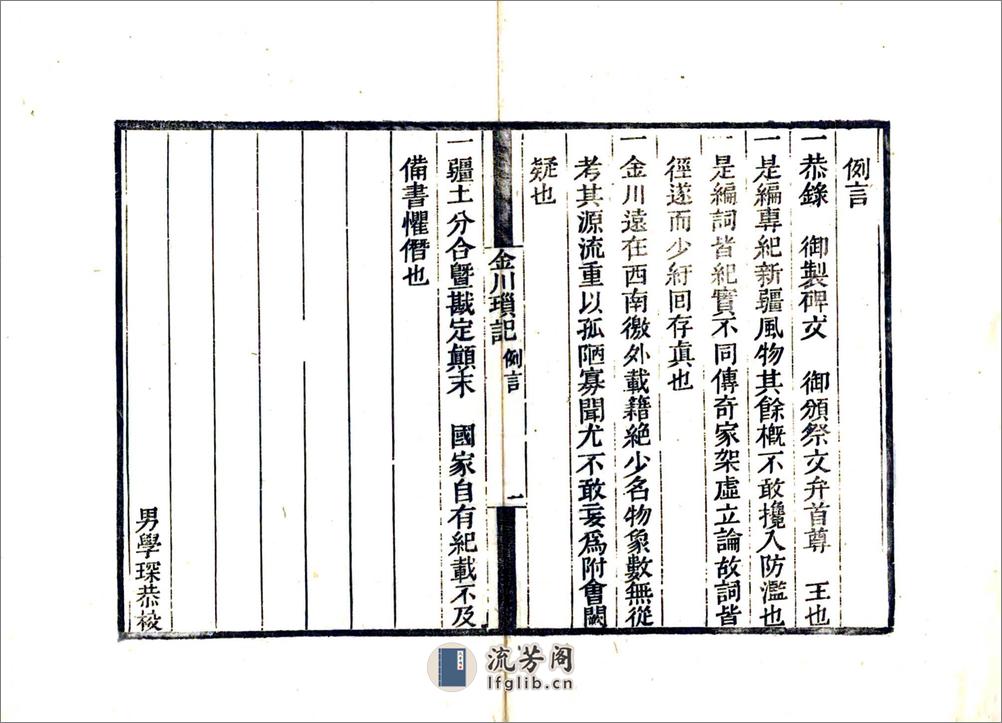 例言
一恭錄　御製碑文　御頒祭文弁首尊　王也
一是編專紀新疆風物其餘槪不敢攙入防濫也
一是編詞皆紀實不同傳奇家架虛立論故詞皆
徑遂而少紆回存眞也
一金川遠在西南徼外載籍絶少名物象數無從
考其源流重以孤陋寡聞尤不敢妄爲附會闕
疑也
金川瑣記　例言　一
一疆土分合曁戡定顚末　國家自有紀載不及
備書懼僭也
男學琛恭校
流芳阁
lfglib.cn